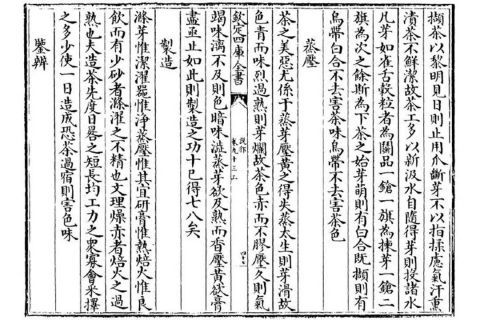 擷茶以黎明見日則止用爪斷芽不以指揉慮氣汗熏
漬茶不鮮潔故茶工多以新汲水自隨得芽則投諸水
凡芽如雀舌穀粒者為鬬品一鎗一旗為揀芽一鎗二
旗為次之餘斯為下茶之始芽萌則有白合既擷則有
烏帶白合不去害茶味烏帶不去害茶色
蒸壓
茶之美惡尤係于蒸芽壓黃之得失蒸太生則芽滑故
色青而味烈過熟則芽爛故茶色赤而不膠壓久則氣
欽定四庫全書
說郛
卷九十三上
竭味漓不及則色暗味澁蒸芽欲及熟而香壓黃欲膏
盡亟止如此則製造之功十已得七八矣
製造
滌芽惟潔濯器惟淨蒸壓惟其宜研膏惟熟焙火惟良
飲而有少砂者滌濯之不精也文理燥赤者焙火之過
熟也夫造茶先度日晷之短長均工力之衆寡會采擇
之多少使一日造成恐茶過宿則害色味
鑒辨